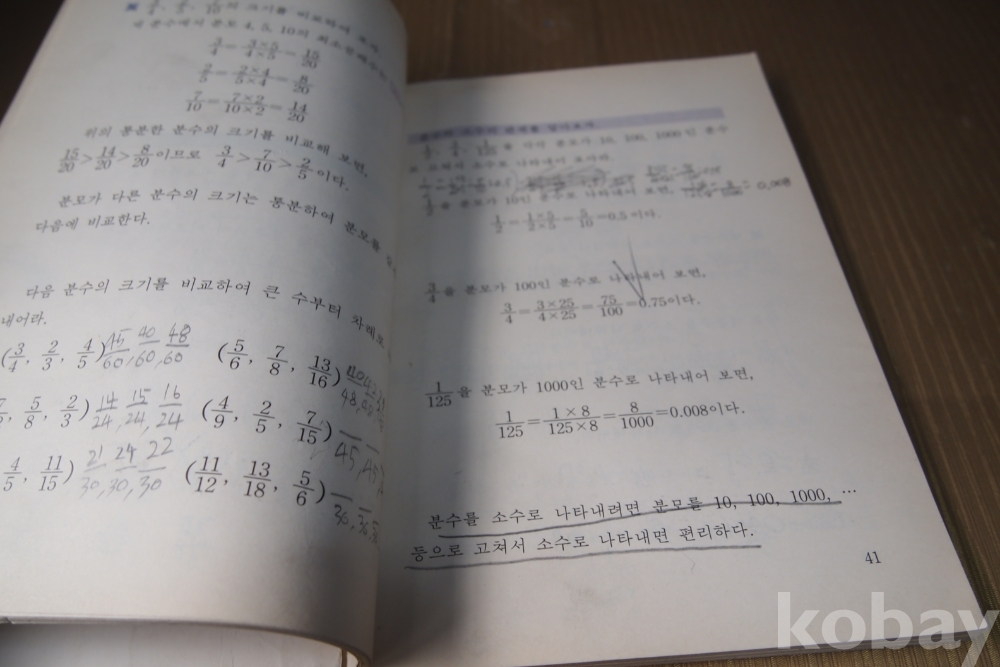 3/4, 2/5, 7/10의 크기를 비교하여 보자.
4, 5, 10의
3/4 = 3×5/4×5 = 15/20
2/5 = 2×4/5×4 = 8/20
7/10 = 7×2/10×2 = 14/20
위의 통분한 분수의 크기를 비교해 보면,
15/20 > 14/20 > 8/20 이므로 3/4 > 7/10 > 2/5 이다.
분모가 다른 분수의 크기는 통분하여 분모를
다음에 비교한다.
다음 분수의 크기를 비교하여 큰 수부터 차례로
내어라.
(3/4, 2/3, 4/5) 45/60, 40/60, 48/60 (5/6, 7/8, 13/16)
5/8, 2/3) 14/24, 15/24, 16/24 (4/9, 2/5, 7/15) 45, 45
4/5, 11/15) 21/30, 24/30, 22/30 (11/12, 13/18, 5/6)
1/2, 3/4, 1/125을 각각 분모가 10, 100, 1000인 분수
로 고쳐서 소수로 나타내어 보아라.
0.008
1/2을 분모가 10인 분수로 나타내어 보면,
1/2 = 1×5/2×5 = 5/10 = 0.5이다.
3/4을 분모가 100인 분수로 나타내어 보면,
3/4 = 3×25/4×25 = 75/100 = 0.75이다.
1/125을 분모가 1000인 분수로 나타내어 보면,
1/125 = 1×8/125×8 = 8/1000 = 0.008이다.
분수를 소수로 나타내려면 분모를 10, 100, 1000, …
등으로 고쳐서 소수로 나타내면 편리하다.
41
kobay